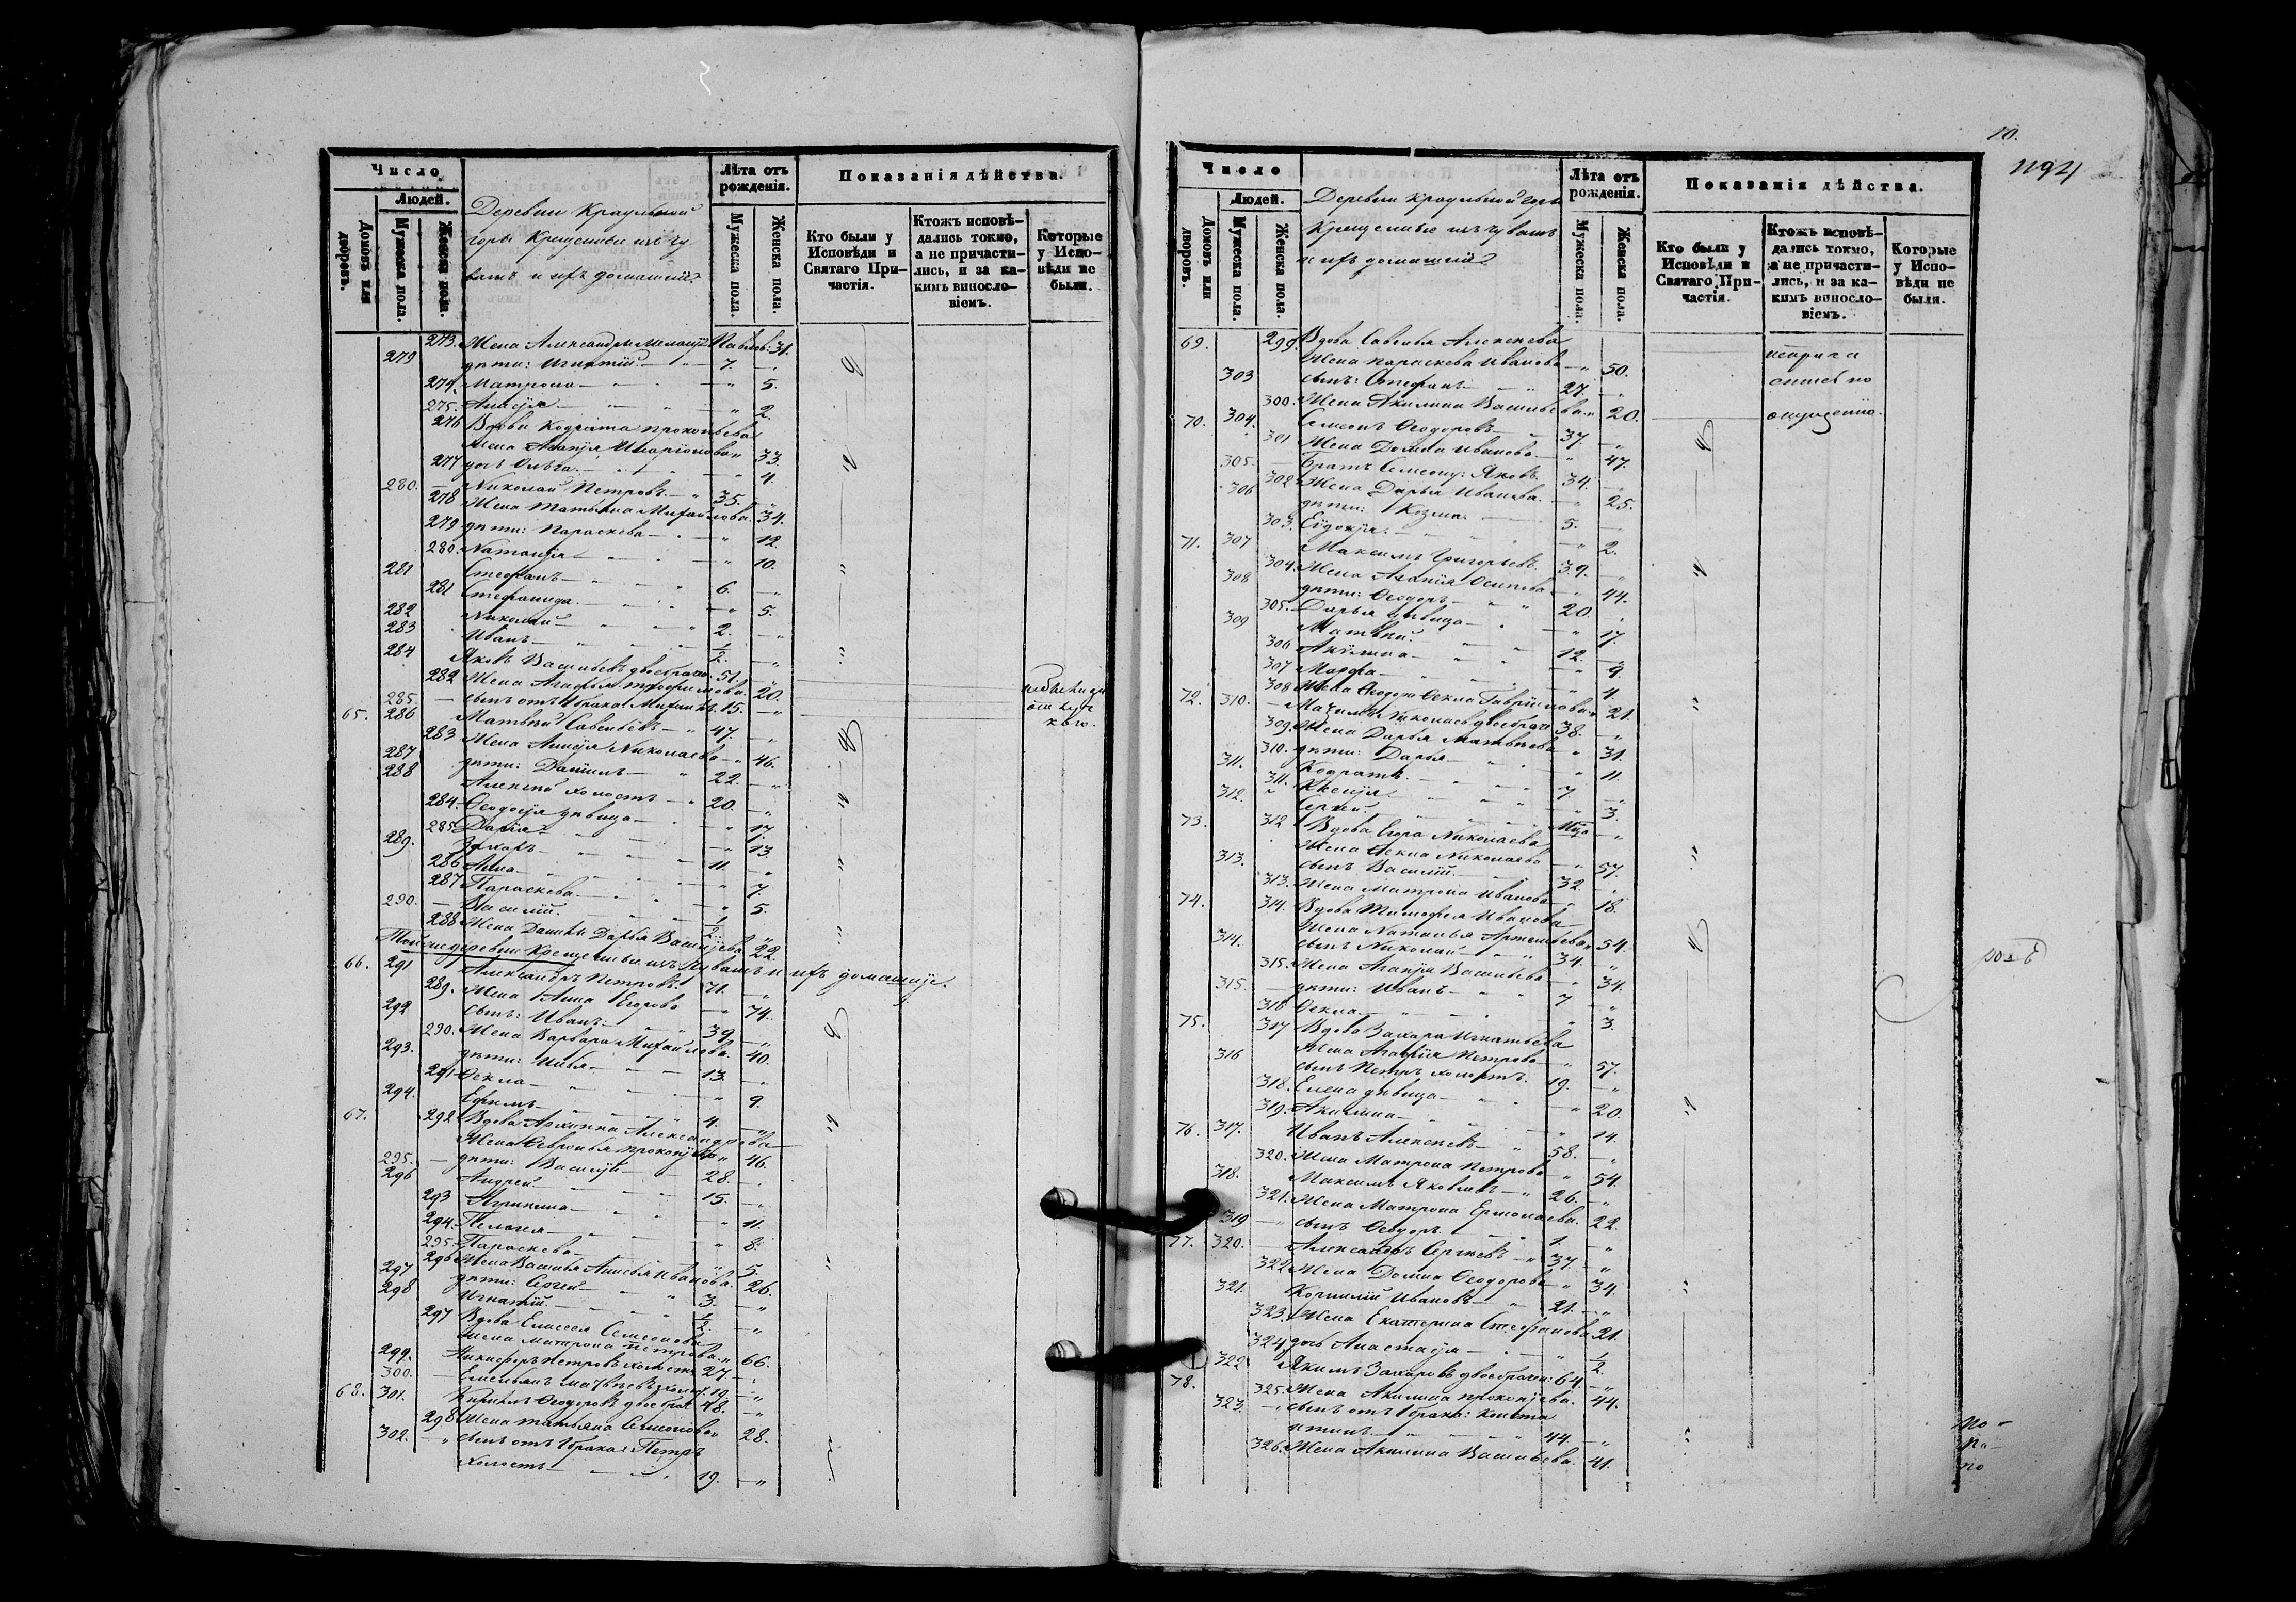 Число
Людей.
Домовъ или дворовъ.
Мужеска пола.
Женска пола.
Деревни Краульной
горы Крещеные изъ чу
вашъ и ихъ домашніе
Лѣта отъ рожденія.
Мужеска пола.
Женска пола.
Показанія дѣйства.
Кто были у Исповѣди и Святаго Причастія.
Ктожъ исповѣдались токмо, а не причастились, и за какимъ винословіемъ.
Которые у Исповѣди не были.
273. Жена Александры Павлов: 31.
279 дѣти: Игнатій 7. "
274. Матрона " 5.
275. " 2.
276 Вдова Кодрата Прокопьева
жена Агапія Иларіонова " 33.
277 дочь Ольга " 4.
280. Николай Петровъ 35. "
278 Жена Татьяна Михайлова 34.
279 дѣти: Параскева " 12.
280. Наталія " 10.
281 Стефанъ 6. "
281 Стефанида " 5.
282 Николай 2. "
283 Иванъ 1/2. "
284 Яковъ Васильевъ двоебрач. 51. "
282 Жена Агафья Трофимова 20.
285. сынъ отъ 1 брака 15. "
65. 286 Матвей Савельевъ 47. "
283 Жена Николаева " 46.
287 дѣти: Даніилъ 22. "
288 Алексей холостъ 20. "
284. Ѳеодосія дѣвица " 17.
285. Дарія " 13.
289. Захаръ 11. "
286 Анна " 7.
287 Параскева " 5.
290. Василій 1/2. "
288 Жена Данилы Дарья Васильева 22.
Той же деревни крещеные изъ Чувашъ и ихъ домашніе.
66. 291 Александръ Петровъ 71. "
289. Жена Анна Егорова " 74.
292 сынъ: Иванъ 39. "
290. Жена Варвара Михайлова 40.
293. дѣти: Илья 13. "
291 Ѳекла " 9.
294. Ефимъ 4. "
67. 292 Вдова Архипа Александрова
Жена Ѳевронья Прокопьева " 46.
295. дѣти: Василій 28. "
296 Андрей 15. "
293 Агрипина " 11.
294. Пелагея " 8.
295. Параскева " 5.
296 Жена Василья Иванова 26.
297 дѣти: Сергей 3. "
298 Игнатій 1/2. "
297 Вдова Елисея Семенова
жена Матрона Петрова " 66.
299. Никифоръ Петровъ холостъ 27. "
300. Емельянъ Матвеевъ холост 19. "
68. 301. Кирилъ Ѳеодоровъ двоебрач 48. "
298 Жена Татьяна Семенова " 28.
302. сынъ отъ 1 брака: Петръ
холостъ 19. "
10.
1194
Число
Людей.
Домовъ или дворовъ.
Мужеска пола.
Женска пола.
Деревни Краульной горы
Крещеные изъ чувашъ
и ихъ домашніе
Лѣта отъ рожденія.
Мужеска пола.
Женска пола.
Показанія дѣйства.
Кто были у Исповѣди и Святаго Причастія.
Ктожъ исповѣдались токмо, а не причастились, и за какимъ винословіемъ.
Которые у Исповѣди не были.
69. 299. Вдова Савелья Алексеева
Жена Параскева Иванова " 50.
303 сынъ: Стефанъ 27. "
300. Жена Акилина Васильева " 20.
70. 304. Семенъ Ѳеодоровъ 37. "
301 Жена Домна Иванова " 47.
305. Братъ Семену: Яковъ 34. "
302. Жена Дарья Иванова " 25.
306 дѣти: Козма 5. "
303. Евдокія " 2.
71. 307 Максимъ Григорьевъ 39. "
304. Жена Агапія Осипова " 44.
308 дѣти: Ѳеодоръ 20. "
305. Дарья дѣвица " 17.
309 Матвей 12. "
306 Акилина " 9.
307 Марфа " 4.
308 Жена Ѳеодора Ѳекла Гаврилова " 21.
72. 310. Максимъ Николаевъ двоебрач 38. "
309. Жена Дарья Матвеева " 31.
310. дѣти: Дарья " 11.
311. Кодратъ 7. "
311. Ксенія " 3.
312. Сергей "
73. 312 Вдова Егора Николаева
Жена Ѳекла Николаева " 57.
313. сынъ Василій 32. "
313. Жена Матрона Иванова " 18.
74. 314. Вдова Тимофея Иванова
Жена Наталья Артемьева " 54.
314. сынъ Николай 34. "
315. Жена Агапія Васильева " 34.
315. дѣти: Иванъ 7 "
316 Ѳекла " 3.
75. 317 Вдова Захара Игнатьева
Жена Агапія Петрова " 57.
316 сынъ Петръ холостъ 19. "
318. Елена дѣвица " 20.
319. Акилина " 14.
76. 317. Иванъ Алексеевъ 58. "
320. Жена Матрона Петрова " 54.
318. Максимъ Яковлевъ 26. "
321. Жена Матрона Ермолаева 22.
319 сынъ Ѳеодоръ 1. "
77. 320. Александръ Сергеевъ 37. "
322. Жена Домна Ѳеодорова " 34.
321. Корнилій Ивановъ 21. "
323. Жена Екатерина Стефанова 21.
324. дочь Анастасія " 1/2.
78. 322 Якимъ Захаровъ двоебрачн: 64. "
325. Жена Акилина Прокопьева 44.
323. сынъ отъ 1 брака: Конста
нтинъ 44. "
326. Жена Акилина Васильева 41.